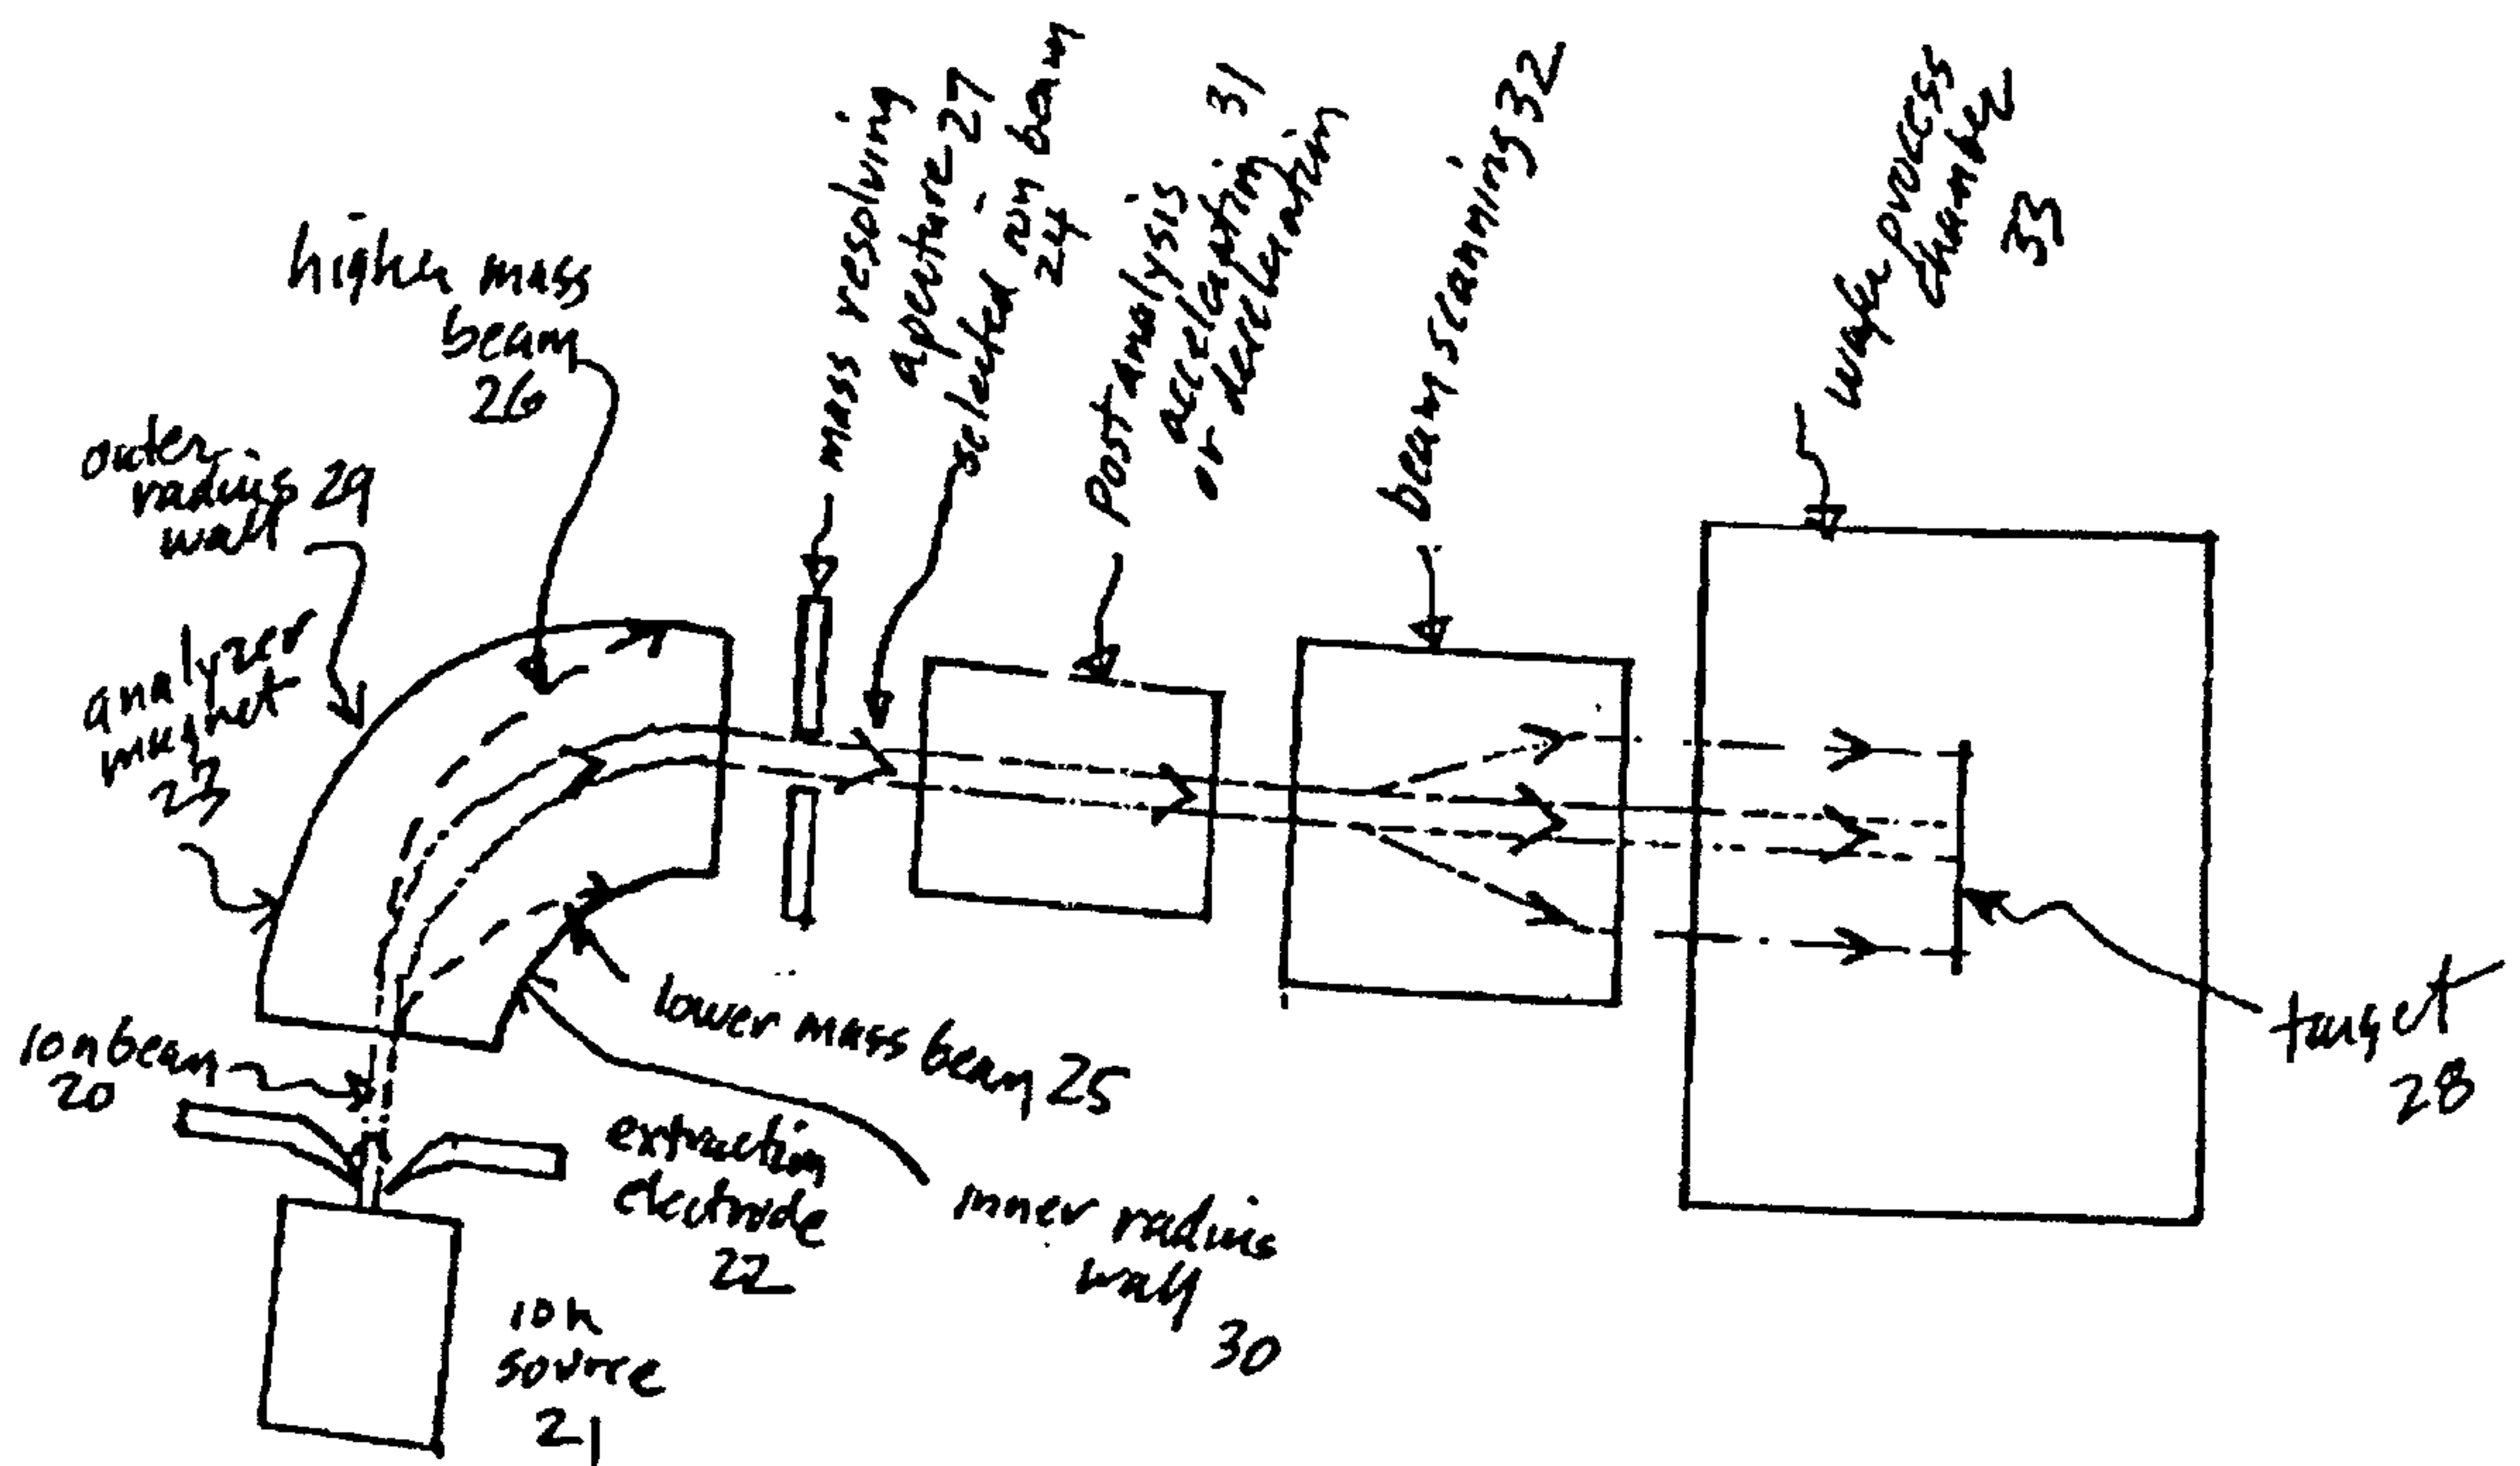 higher mass
beam
26
outer
radius 29
wall
analyzer
magnet
23
mass resolving
aperture 27
selected ion beam
24
post analysis
acceleration 31
or deceleration
beam scanning 32
wafer process
chamber
33
ion beam
20
lower mass beam 25
extraction
electrode
22
inner radius
wall
30
ion
source
21
target
28